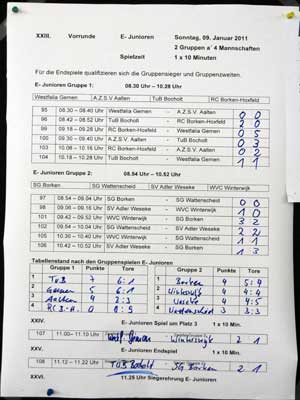 XXIII. Vorrunde E- Junioren Sonntag, 09. Januar 2011
2 Gruppen a´ 4 Mannschaften
Spielzeit 1 x 10 Minuten
Für die Endspiele qualifizieren sich die Gruppensieger und Gruppenzweiten.
E- Junioren Gruppe 1: 08.30 Uhr – 10.28 Uhr
Westfalia Gemen A.Z.S.V. Aalten TuB Bocholt RC Borken-Hoxfeld
95 08.30 – 08.40 Uhr Westfalia Gemen - A.Z.S.V. Aalten 0 0
96 08.42 – 08.52 Uhr TuB Bocholt - RC Borken-Hoxfeld
99 09.18 – 09.28 Uhr RC Borken-Hoxfeld - Westfalia Gemen 0 5
100 09.30 – 09.40 Uhr A.Z.S.V. Aalten - TuB Bocholt 0 3
103 10.06 – 10.16 Uhr RC Borken-Hoxfeld - A.Z.S.V. Aalten
104 10.18 – 10.28 Uhr TuB Bocholt - Westfalia Gemen 1 1
E- Junioren Gruppe 2: 08.54 Uhr – 10.52 Uhr
SG Borken SG Wattenscheid SV Adler Weseke WVC Winterwijk
97 08.54 – 09.04 Uhr SG Borken - SG Wattenscheid 0 0
98 09.06 – 09.16 Uhr SV Adler Weseke - WVC Winterwijk 1 0
101 SG Borken 3 2
102 SG Wattenscheid - SV Adler Weseke 2 2
105 WVC Winterwijk - SG Wattenscheid 1 1
106 10.42 – 10.52 Uhr SV Adler Weseke - SG Borken
Tabellenstand nach den Gruppenspielen E- Junioren
Gruppe 1 Punkte Tore Gruppe 2 Punkte Tore
1 TuB 7 6:1 1 Borken 4 5:4
2 Gemen 5 6:1 2 Winterswijk 4 4:4
3 Aalten 4 2:3 3 Weseke 4 4:4
4 RC B-H. 0 4 Wattenscheid 3 3:3
XXIV. E- Junioren Spiel um Platz 3 1 x 10 Min.
107 11.00 – 11.10 Uhr Westf. Gemen Winterswijk 2 1
XXV. E- Junioren Endspiel 1 x 10 Min.
108 11.12 – 11.22 Uhr TUB Bocholt SG Borken 2 1
XXVI. 11.25 Uhr Siegerehrung E- Junioren